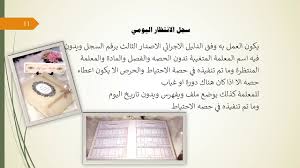 11
سجل الانتظار اليومي
يكون العمل به وفق الدليل الاجرائي الاصدار الثالث يرقم السجل ويدون
فيه اسم المعلمة المتغيبة تدون الحصه والفصل والمادة والمعلمة
المنتظرة وما تم تنفيذه في حصة الاحتياط والحرص الا يكون اعطاء
حصه الا اذا كان هناك دورة او غياب
للمعلمة كذلك يوضع ملف ويفهرس ويدون تاريخ اليوم
وما تم تنفيذه في حصه الاحتياط